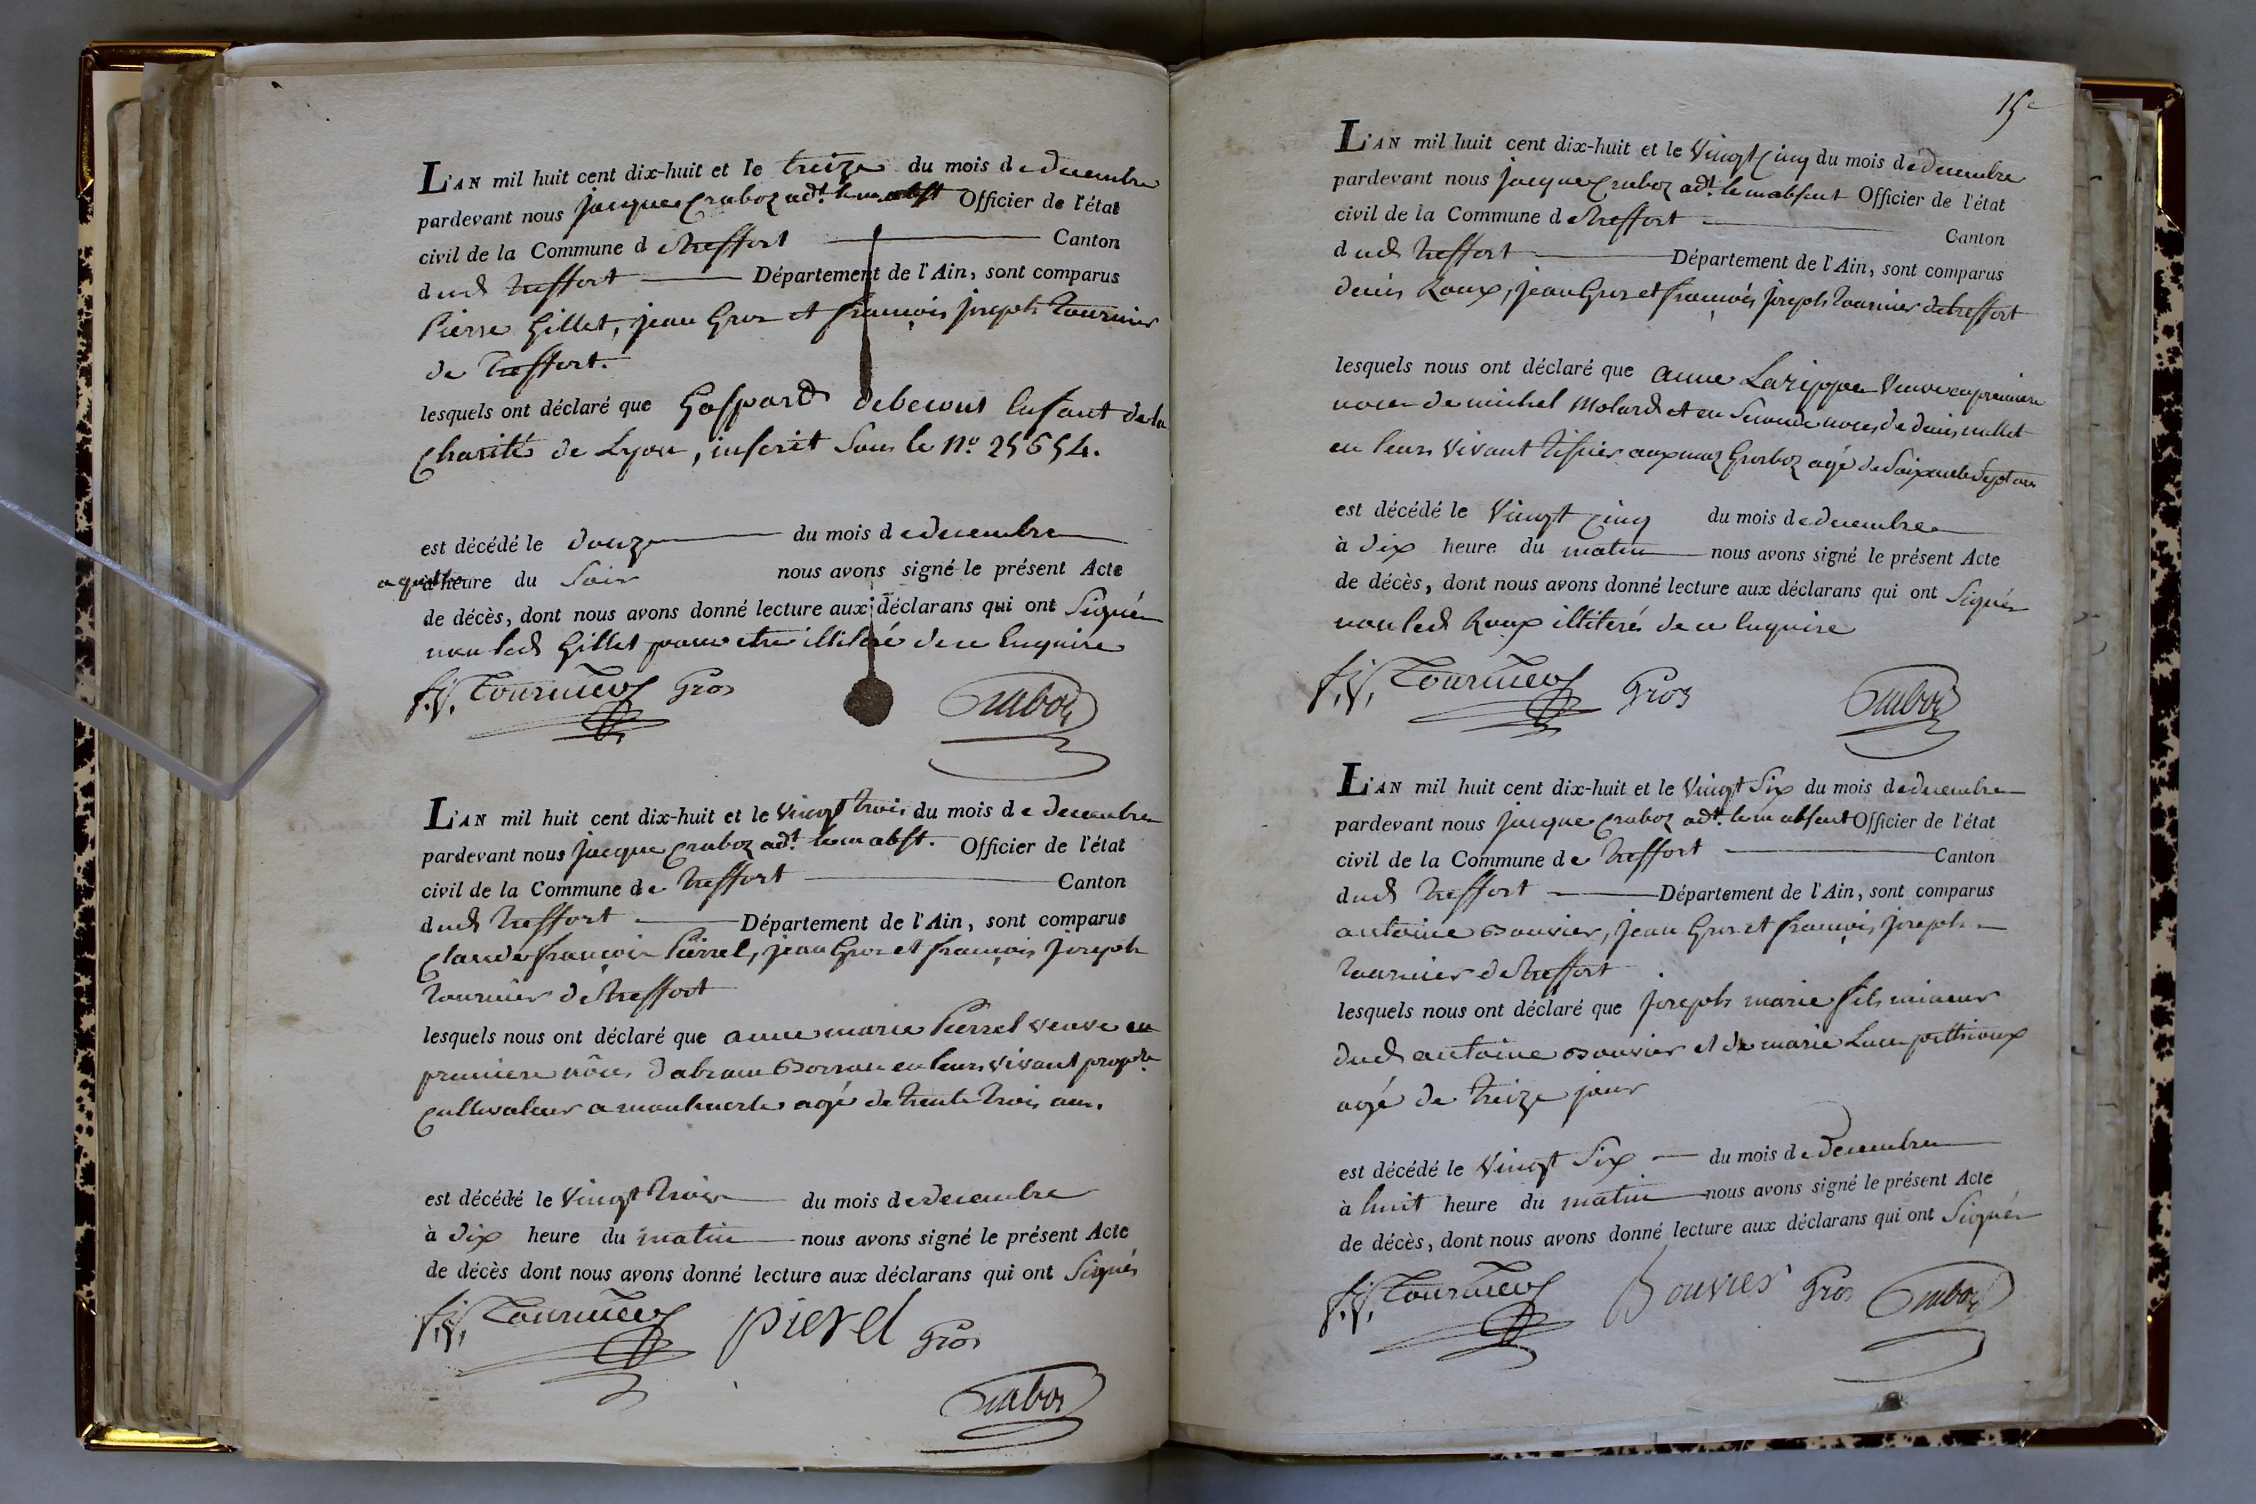 L'AN mil huit cent dix-huit et le treize du mois de decembre
pardevant nous jacques Craboz adt. le m. abst Officier de l'état
civil de la Commune d etreffort Canton
dud treffort Département de l'Ain, sont comparus
Pierre Gillet, jean Gros et françois joseph tournier
de treffort.
lesquels ont déclaré que Gaspard debecout Enfant de la
Charité de Lyon, inscrit sous le No. 25654.
est décédé le douze du mois de decembre
a quatre heure du soir nous avons signé le présent Acte
de décès, dont nous avons donné lecture aux déclarans qui ont signés
non led Gillet pour etre illiteré de ce Enquire
f. j. Tournier Gros
Craboz
L'AN mil huit cent dix-huit et le vingt trois du mois de decembre
pardevant nous jacque Craboz adt. le m abst. Officier de l'état
civil de la Commune de treffort Canton
dud treffort Département de l'Ain, sont comparus
Claude françois Pierrel, jean Gros et françois joseph
tournier de treffort
lesquels nous ont déclaré que anne marie Pierrel veuve en
premiere nôces d'abram Borron en leurs vivant propre
Cultivateur a age de trente trois ans.
est décédé le vingt trois du mois de decembre
à dix heure du matin nous avons signé le présent Acte
de décès dont nous avons donné lecture aux déclarans qui ont signés
f. j. Tournier pierel Gros
Craboz
15e
L'AN mil huit cent dix-huit et le vingt cinq du mois de decembre
pardevant nous jacque Craboz adt. le m absent Officier de l'état
civil de la Commune de treffort Canton
dud treffort Département de l'Ain, sont comparus
denis Roux, jean Gros et françois joseph tournier de treffort
lesquels nous ont déclaré que anne Larippe veuve en premiere
noces de michel Molard et en seconde noces de denis millet
en leurs vivant tissier age de soixante sept ans
est décédé le vingt cinq du mois de decembre
à dix heure du matin nous avons signé le présent Acte
de décès, dont nous avons donné lecture aux déclarans qui ont signés
non led Roux illiterés de ce Enquire
f. j. Tournier Gros
Craboz
L'AN mil huit cent dix-huit et le vingt six du mois de decembre
pardevant nous jacque Craboz adt. le m absent Officier de l'état
civil de la Commune de treffort Canton
dud treffort Département de l'Ain, sont comparus
antoine Bouvier, jean Gros et françois joseph
tournier de treffort
lesquels nous ont déclaré que joseph marie fils mineur
dud antoine Bouvier et de marie Luce pethioux
agé de treize jour
est décédé le vingt six du mois de decembre
à huit heure du matin nous avons signé le présent Acte
de décès, dont nous avons donné lecture aux déclarans qui ont signés
f. j. Tournier Bouvier Gros Craboz